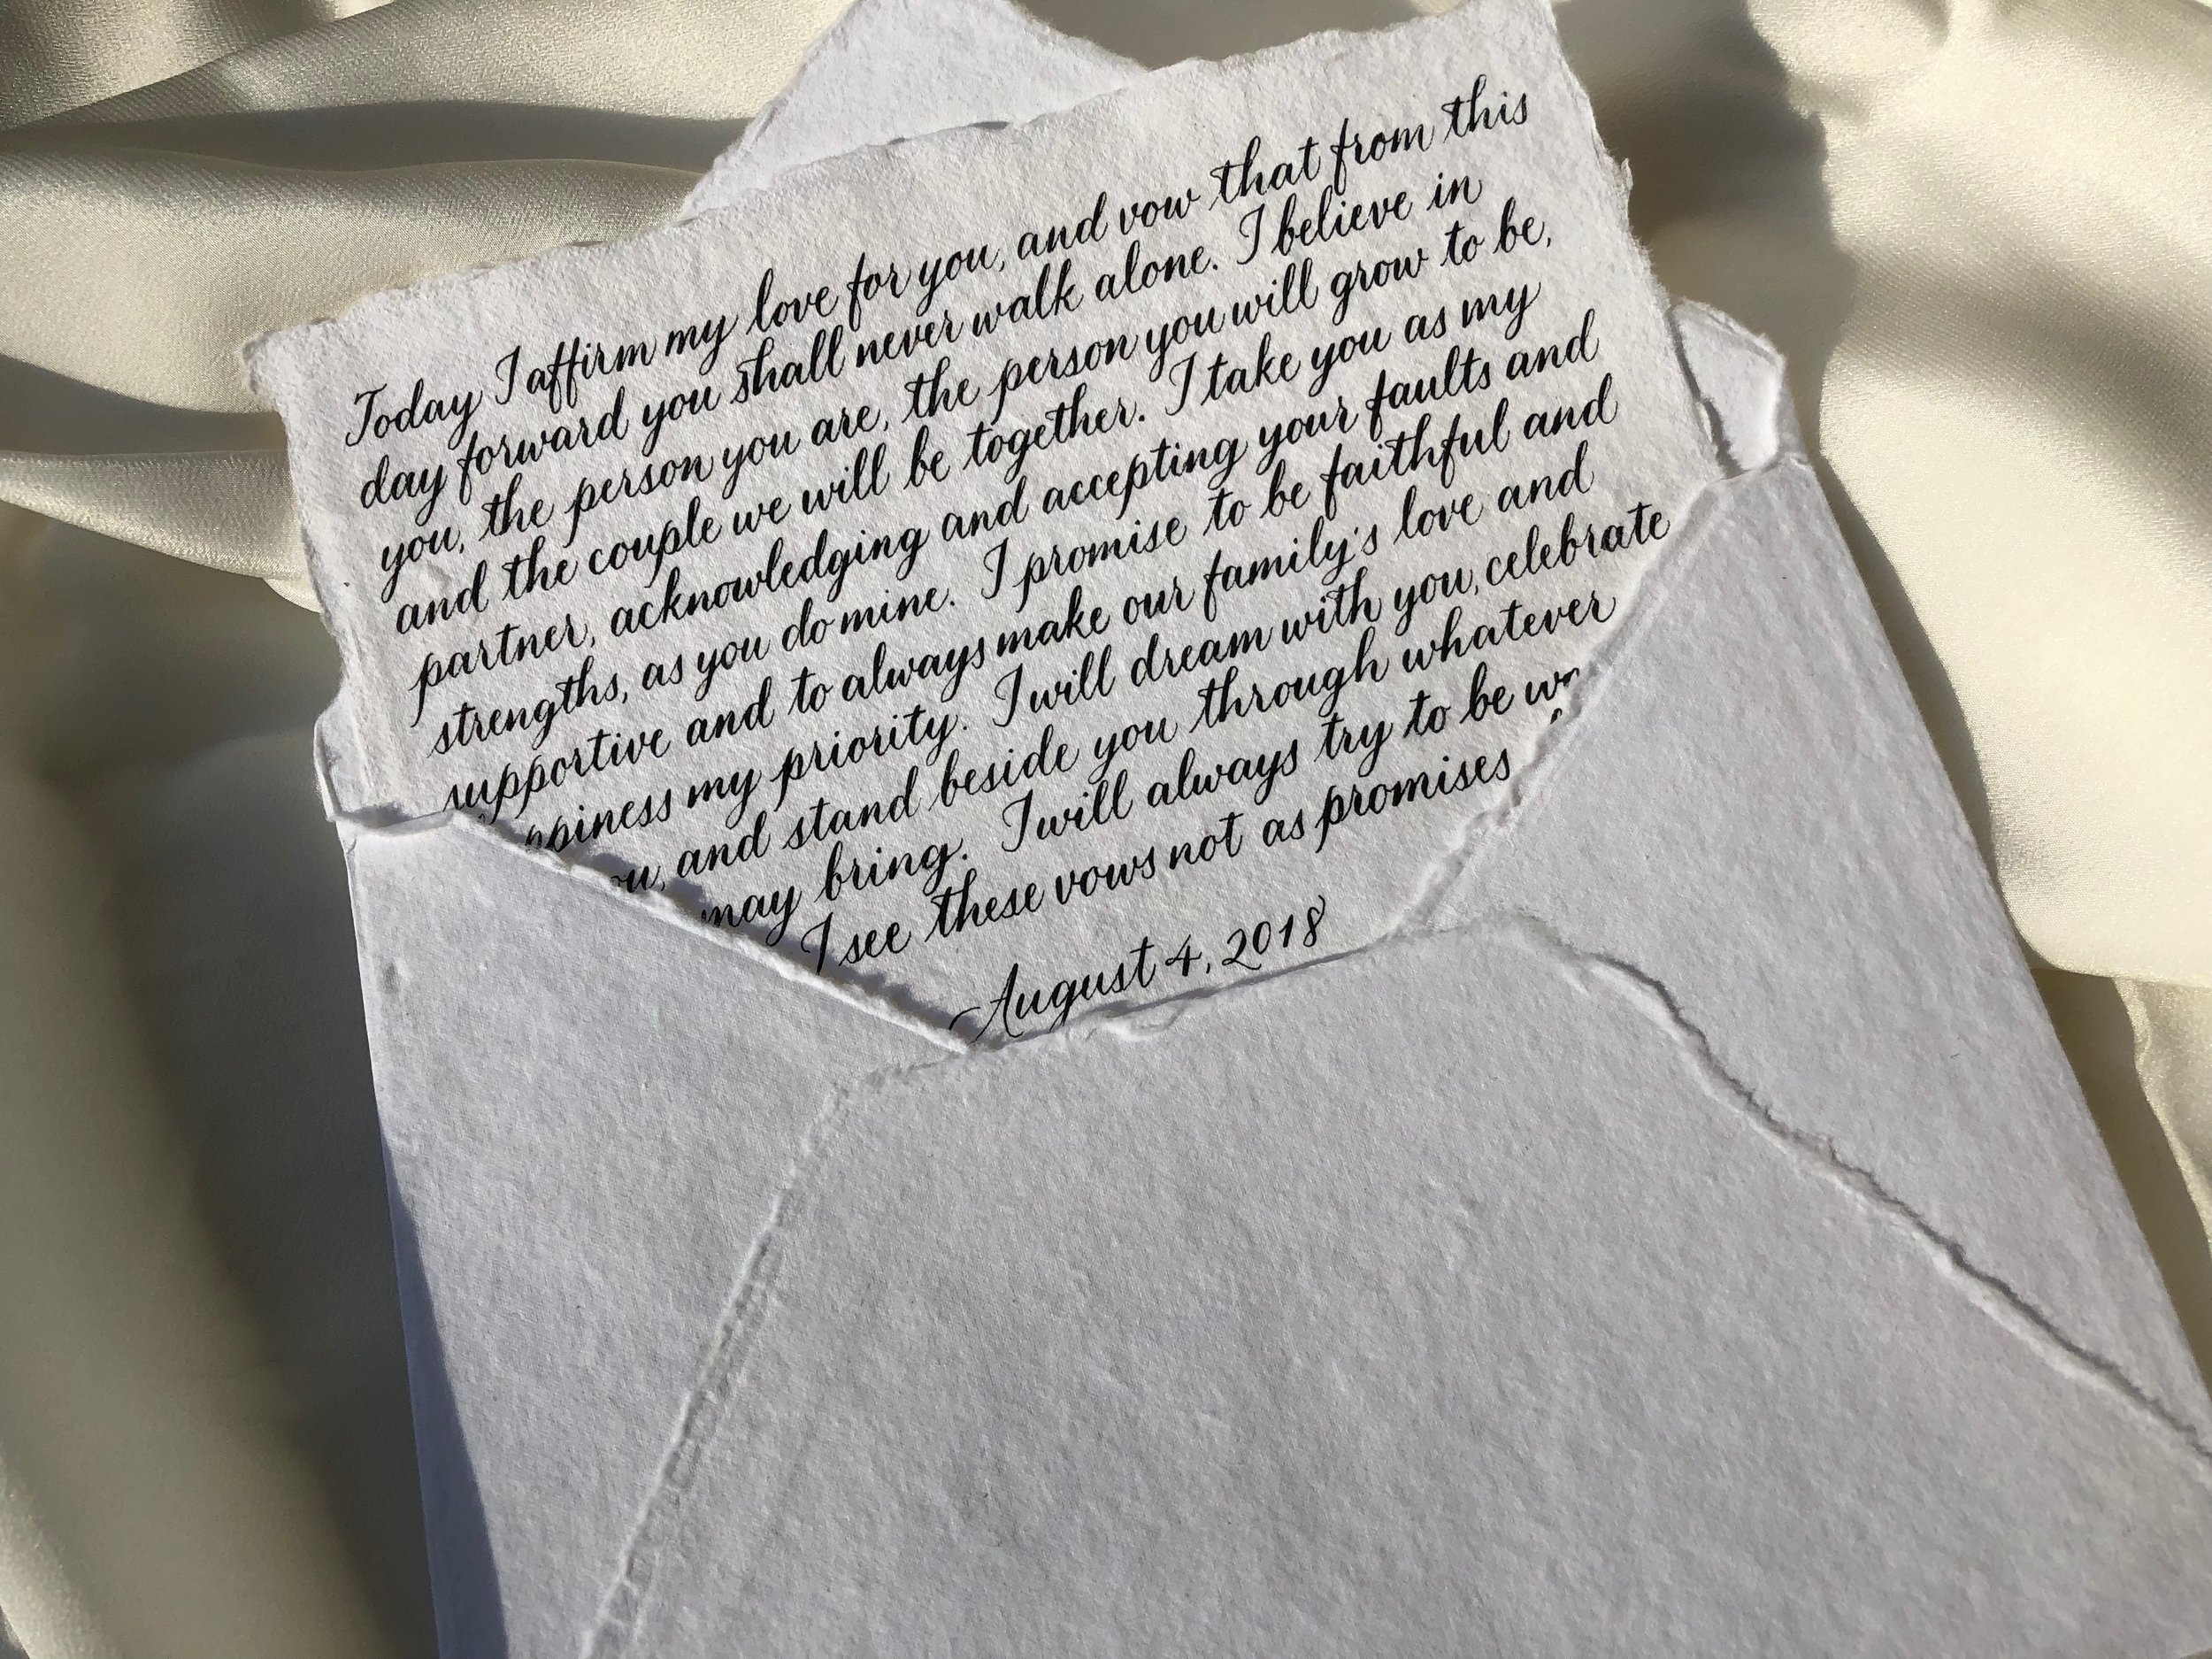 Today I affirm my love for you, and vow that from this
day forward you shall never walk alone. I believe in
you, the person you are, the person you will grow to be,
and the couple we will be together. I take you as my
partner, acknowledging and accepting your faults and
strengths, as you do mine. I promise to be faithful and
supportive and to always make our family's love and
ppiness my priority. I will dream with you, celebrate
ou, and stand beside you through whatever
may bring. I will always try to be wo
I see these vows not as promises
August 4, 2018